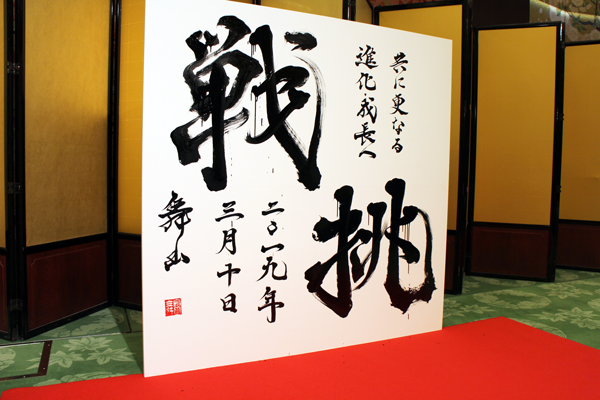 共に更なる
進化・成長へ
挑
戦
二〇一九年
三月十日
舞山